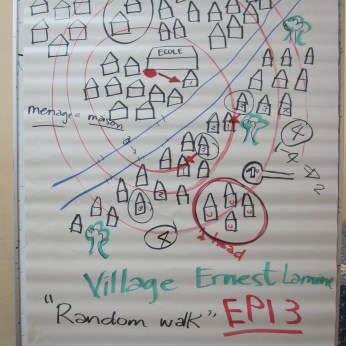 ECOLE
menage = maison
4
4
head
Village Ernest Lamine
"Random walk" EPI 3